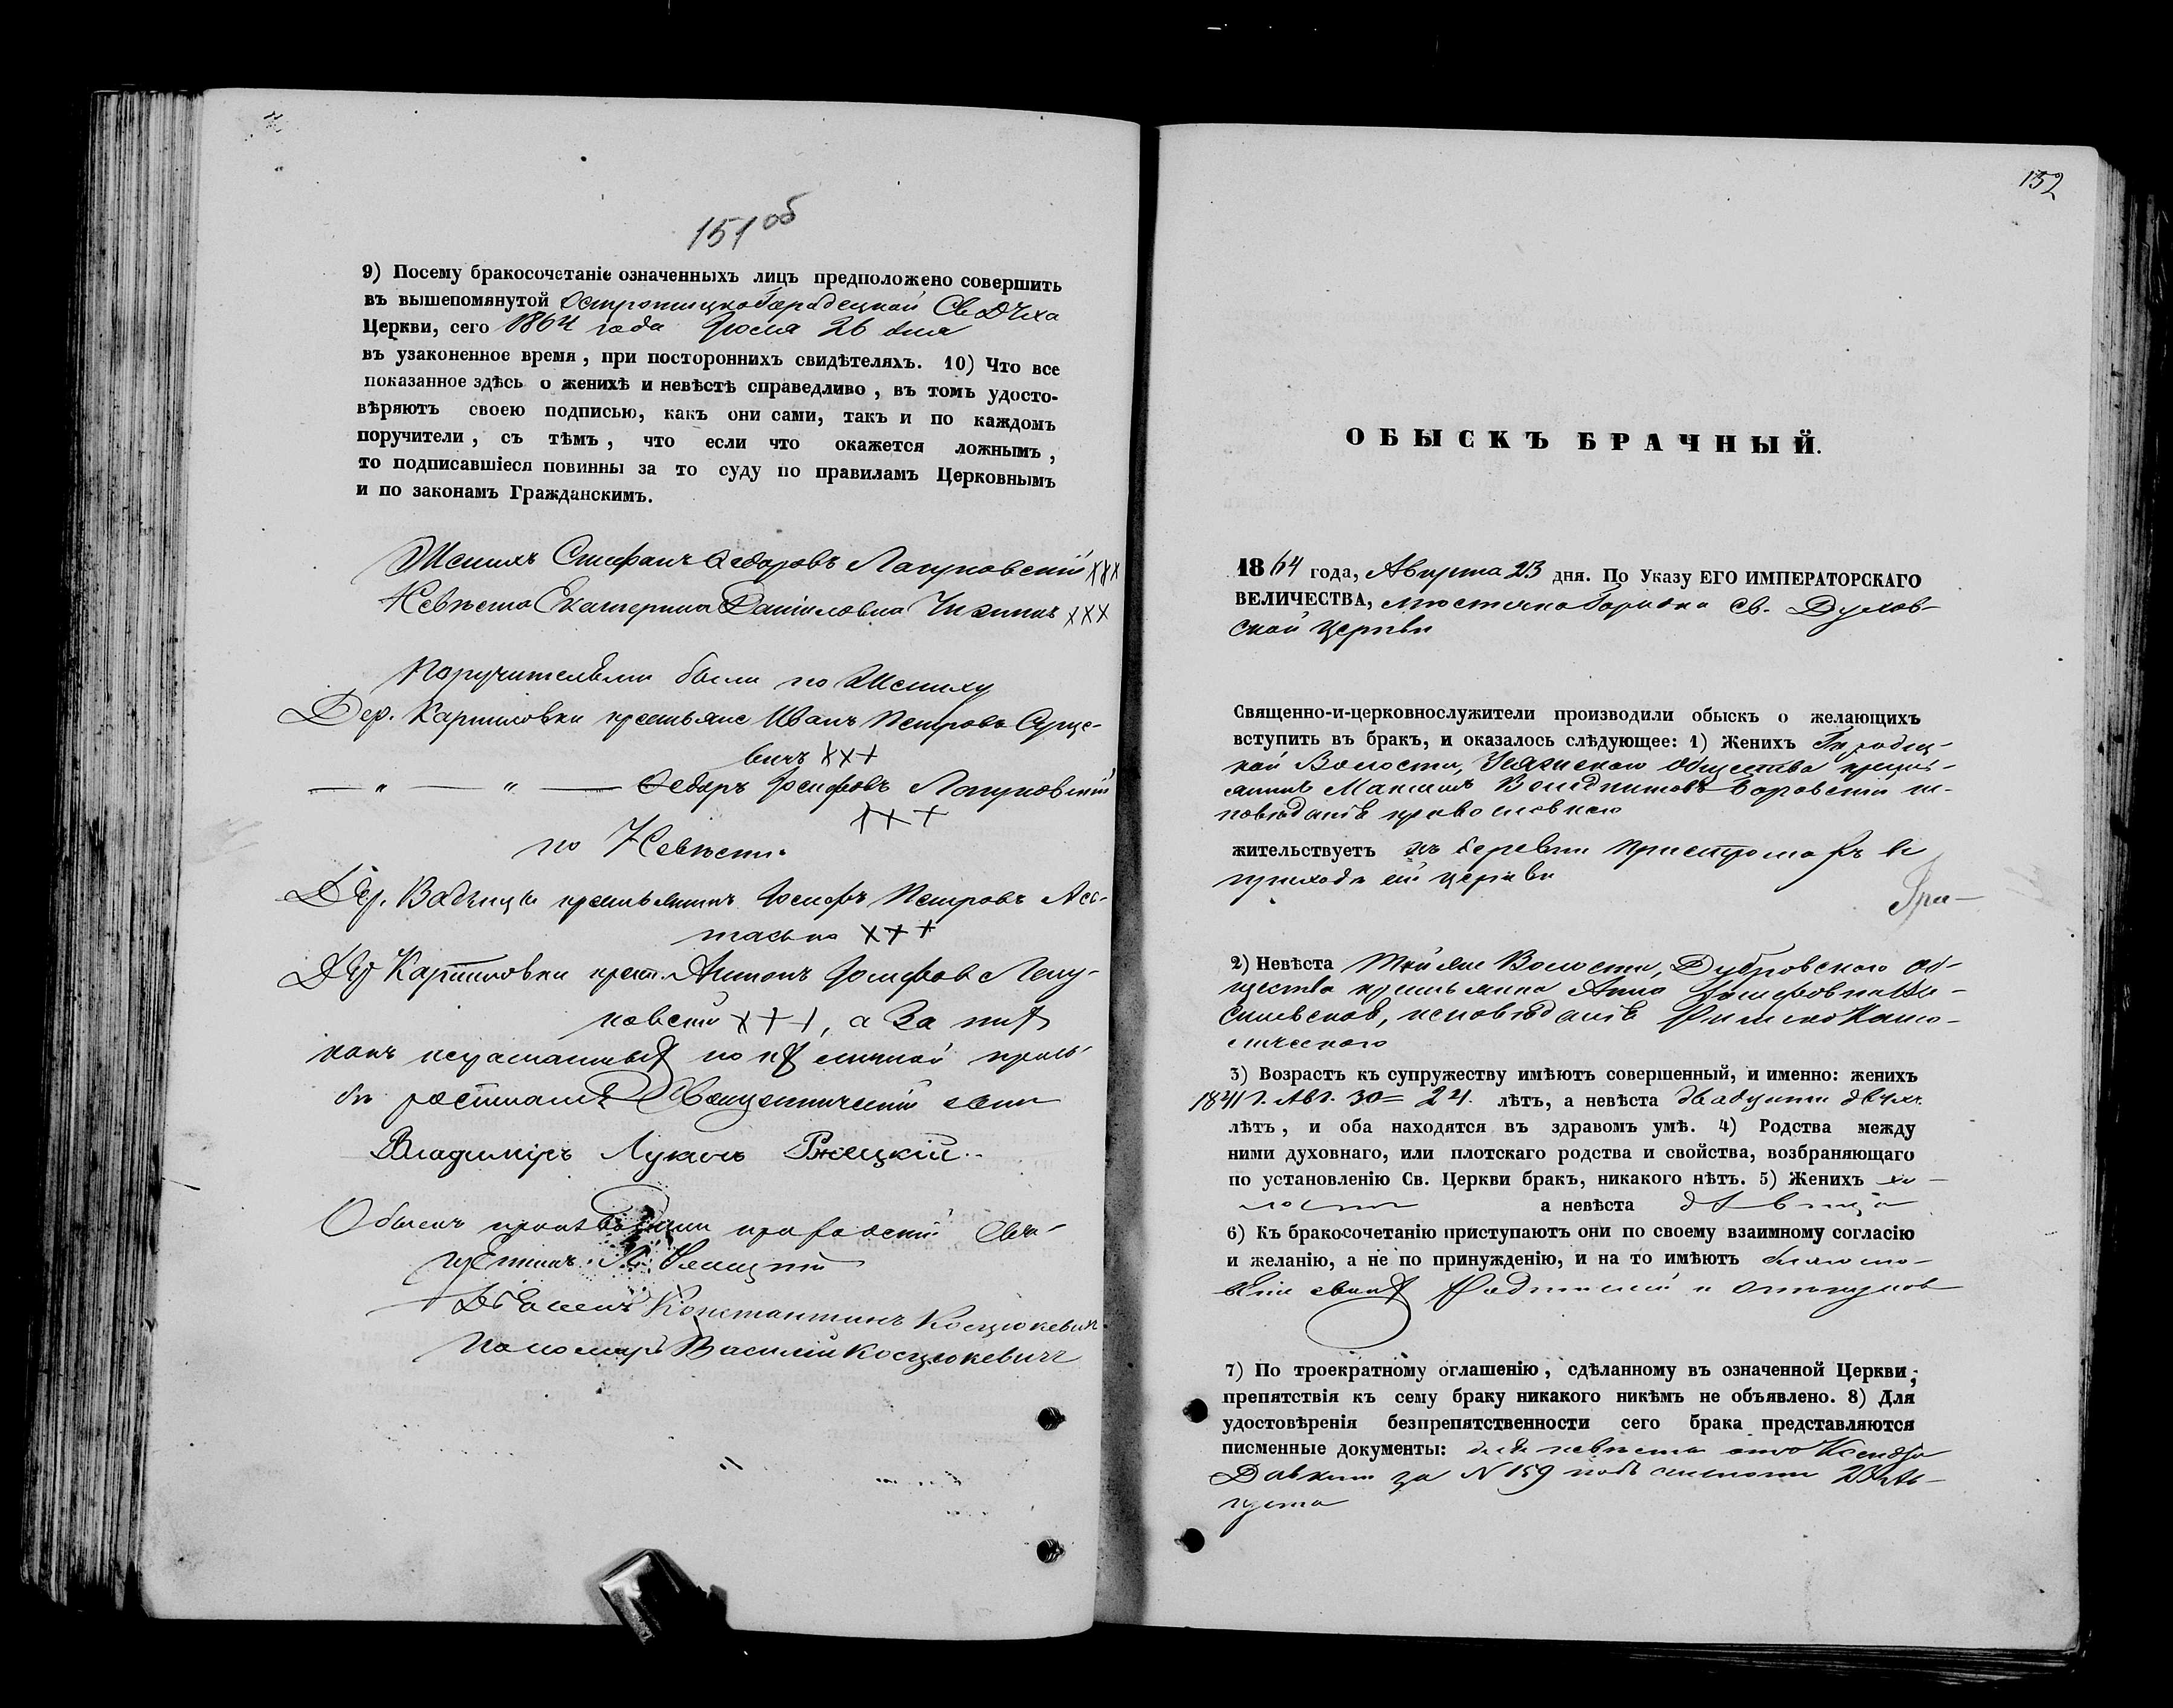 151 об
9) Посему бракосочетаніе означенныхъ лицъ предположено совершить
въ вышепомянутой Острошицкогородецкой Св Дха
Церкви, сего 1864 года Іюля 26 дня
въ узаконенное время, при постороннихъ свидѣтеляхъ. 10) Что все
показанное здѣсь о женихѣ и невѣстѣ справедливо, въ томъ удосто-
вѣряютъ своею подписью, какъ они сами, такъ и по каждомъ
поручители, съ тѣмъ, что если что окажется ложнымъ,
то подписавшіеся повинны за то суду по правиламъ Церковнымъ
и по законамъ Гражданскимъ.
Женихъ Стефанъ Ѳедоровъ Лагуновскій ххх
Невѣста Екатерина Даніилова ххх
Поручительми были по Жениху
Дер. Карниловки крестьяне Иванъ Петровъ
вичъ ххх
— " — " — Ѳедоръ Іосифовъ Лагуновскій
ххх
по Невѣсти
Дер. крестьянинъ Іосифъ Петровъ Ас-
ташко ххх
Дер Карниловки крест. Антонъ Іосифовъ Лагу-
новскій ххх, а за них
какъ неграматных по их личной прось-
бѣ росписался Священническій сынъ
Владимиръ Лукинъ Ржецкій
Обыскъ производили приходскій Свя-
щенникъ Л.
Дьячекъ Константинъ Косцюкевич
Пономарь Василій Косцюкевичъ
152
ОБЫСКЪ БРАЧНЫЙ.
1864 года, Августа 23 дня. По Указу ЕГО ИМПЕРАТОРСКАГО
ВЕЛИЧЕСТВА, мѣстечка Городка св. Духов-
ской церкви
Священно-и-церковнослужители производили обыскъ о желающихъ
вступить въ бракъ, и оказалось слѣдующее: 1) Женихъ Городец-
кой Волости, общества крестья-
нинъ Боровскій ис-
повѣданія православнаго
жительствуетъ въ деревни въ
приходѣ сей церкви
2) Невѣста Волости, Дубровского об-
щества крестьянка Анна Іосифовна Ва-
силевская, исповѣданія Римско Като-
лическаго
3) Возрастъ къ супружеству имѣютъ совершенный, и именно: женихъ
1841 г. Авг. 30 = 24. лѣтъ, а невѣста двадцати двухъ
лѣтъ, и оба находятся въ здравомъ умѣ. 4) Родства между
ними духовнаго, или плотскаго родства и свойства, возбраняющаго
по установленію Св. Церкви бракъ, никакого нѣтъ. 5) Женихъ хо-
лостъ а невѣста дѣвица
6) Къ бракосочетанію приступаютъ они по своему взаимному согласію
и желанію, а не по принужденію, и на то имѣютъ благосло-
веніе своихъ родителей и опекуновъ
7) По троекратному оглашенію, сдѣланному въ означенной Церкви,
препятствія къ сему браку никакого никѣмъ не объявлено. 8) Для
удостовѣренія безпрепятственности сего брака представляются
писменные документы: для невѣсты отъ Ксендза
за N 159 подъ 20 Ав-
густа